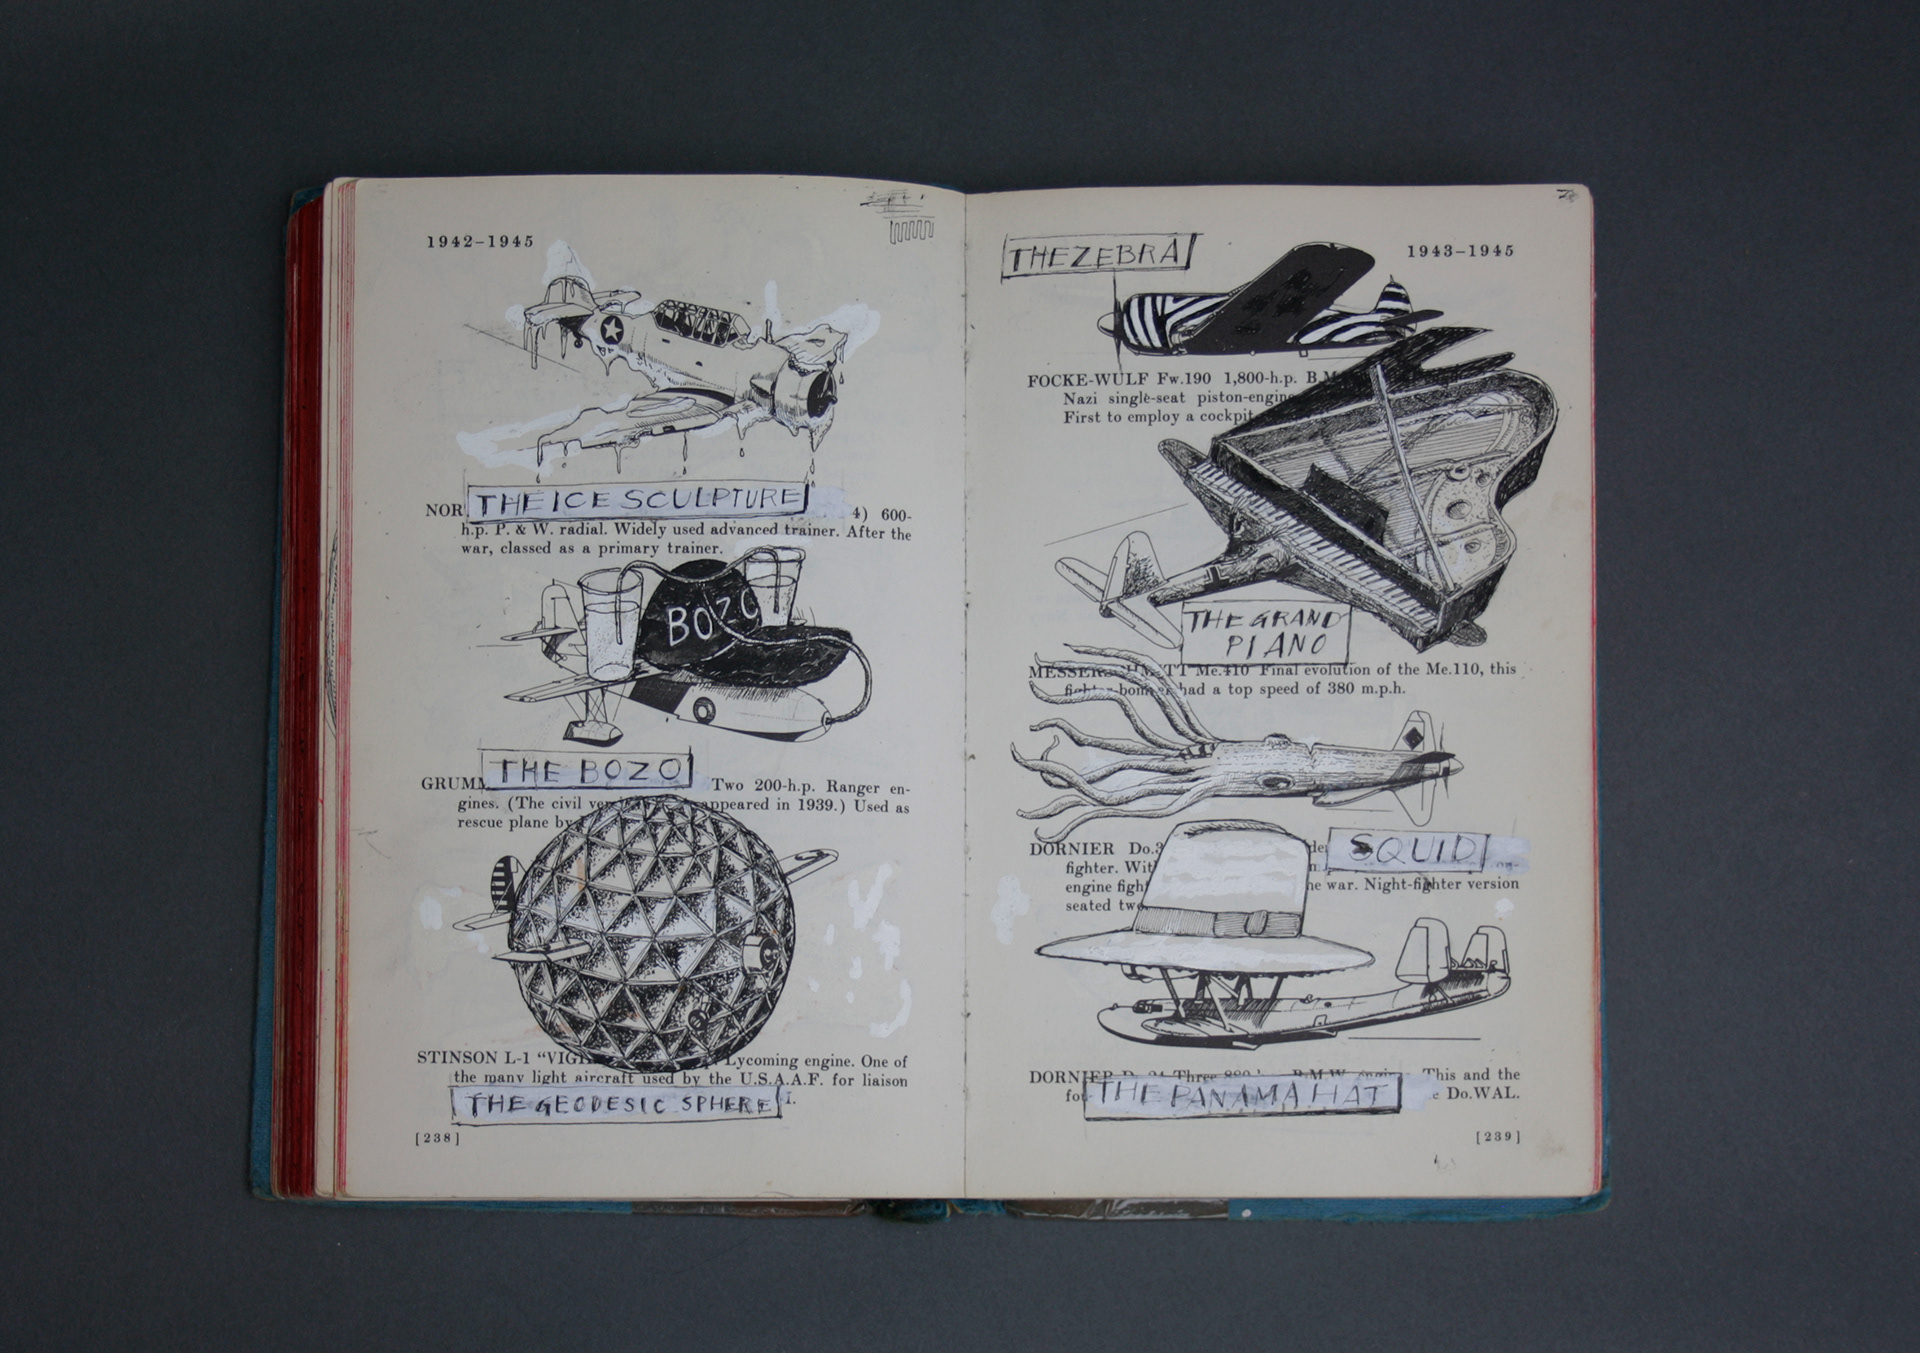 1942–1945
THE ICE SCULPTURE
NOR 4) 600-
h.p. P. & W. radial. Widely used advanced trainer. After the
war, classed as a primary trainer.
BOZO
THE BOZO
GRUMM Two 200-h.p. Ranger en-
gines. (The civil appeared in 1939.) Used as
rescue plane by
STINSON L-1 “VIGI Lycoming engine. One of
the many light aircraft used by the U.S.A.A.F. for liaison
THE GEODESIC SPHERE I.
[238]
THE ZEBRA
1943–1945
FOCKE-WULF Fw.190 1,800-h.p. B.M
Nazi single-seat piston-engine
First to employ a cockpit
THE GRAND
PIANO
MESSERSCHMITT Me.410 Final evolution of the Me.110, this
fighter-bomber had a top speed of 380 m.p.h.
SQUID
DORNIER Do.3
fighter. Wit
engine figh he war. Night-fighter version
seated two
DORNIER Do.24 Three 880-h.p. B.M.W. engines. This and the
fo THE PANAMA HAT e Do.WAL.
[239]